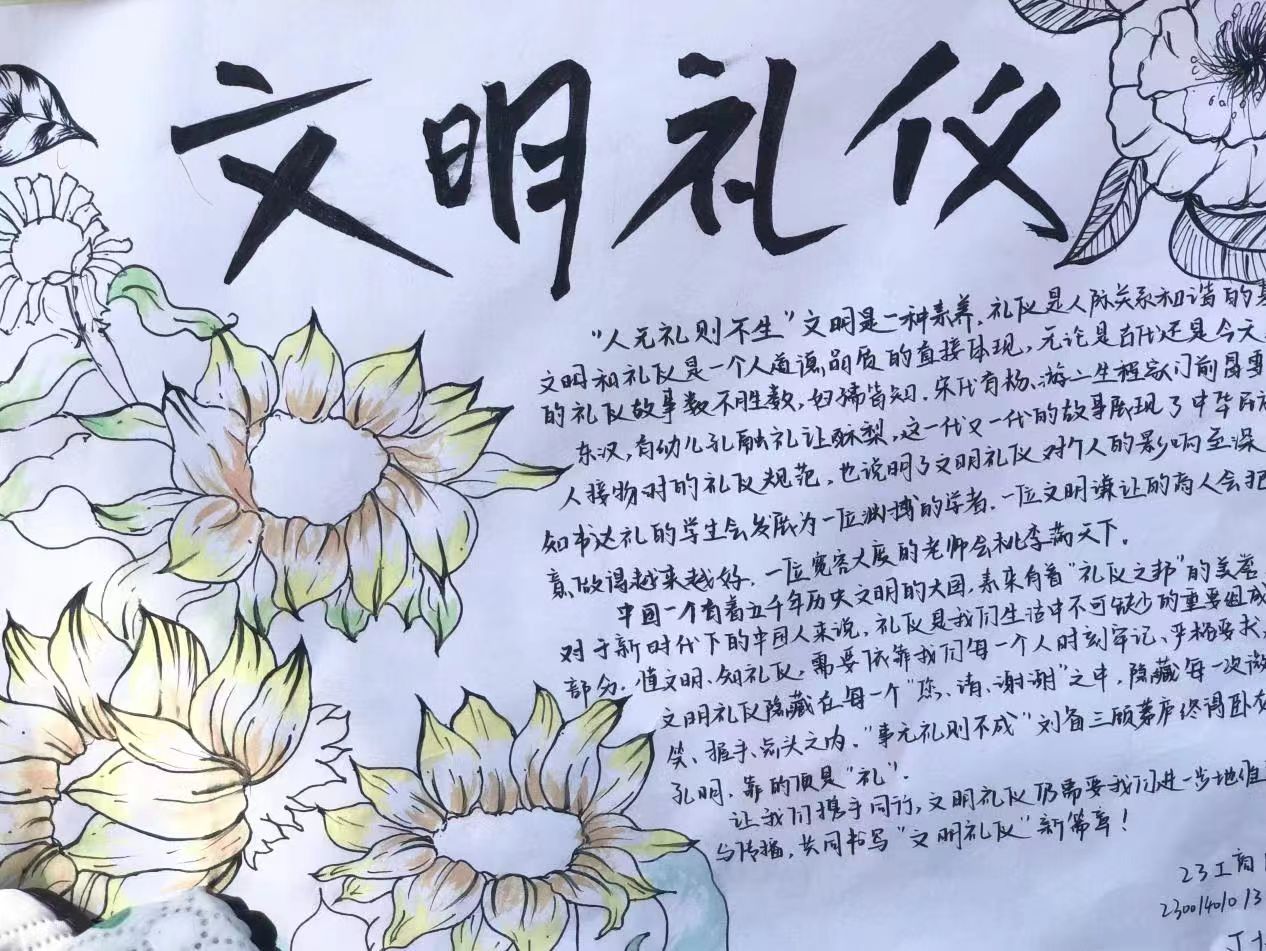 文明礼仪
“人无礼则不生”文明是一种素养，礼仪是人际关系和谐的基
文明和礼仪是一个人道德品质的直接体现，无论是古代还是今天
的礼仪故事数不胜数，妇孺皆知．宋代有杨、游二生程家门前冒雪
东汉，有幼儿孔融礼让酥梨，这一代又一代的故事展现了中华民族
人接物时的礼仪规范，也说明了文明礼仪对个人的影响至深
知书达礼的学生会发展为一位渊博的学者．一位文明谦让的商人会把
意做得越来越好．一位宽容大度的老师会桃李满天下。
中国一个有着五千年历史文明的大国，素来有着“礼仪之邦”的美誉
对于新时代下的中国人来说，礼仪是我们生活中不可缺少的重要组成
部分．懂文明、知礼仪，需要依靠我们每一个人时刻牢记、严格要求，
文明礼仪隐藏在每一个“您、请、谢谢”之中，隐藏每一次微
笑、握手、点头之内．“事无礼则不成”刘备三顾茅庐终得卧
孔明，靠的便是“礼”．
让我们携手同行，文明礼仪仍需要我们进一步地
与传播，共同书写“文明礼仪”新篇章！
23工商
23001401013